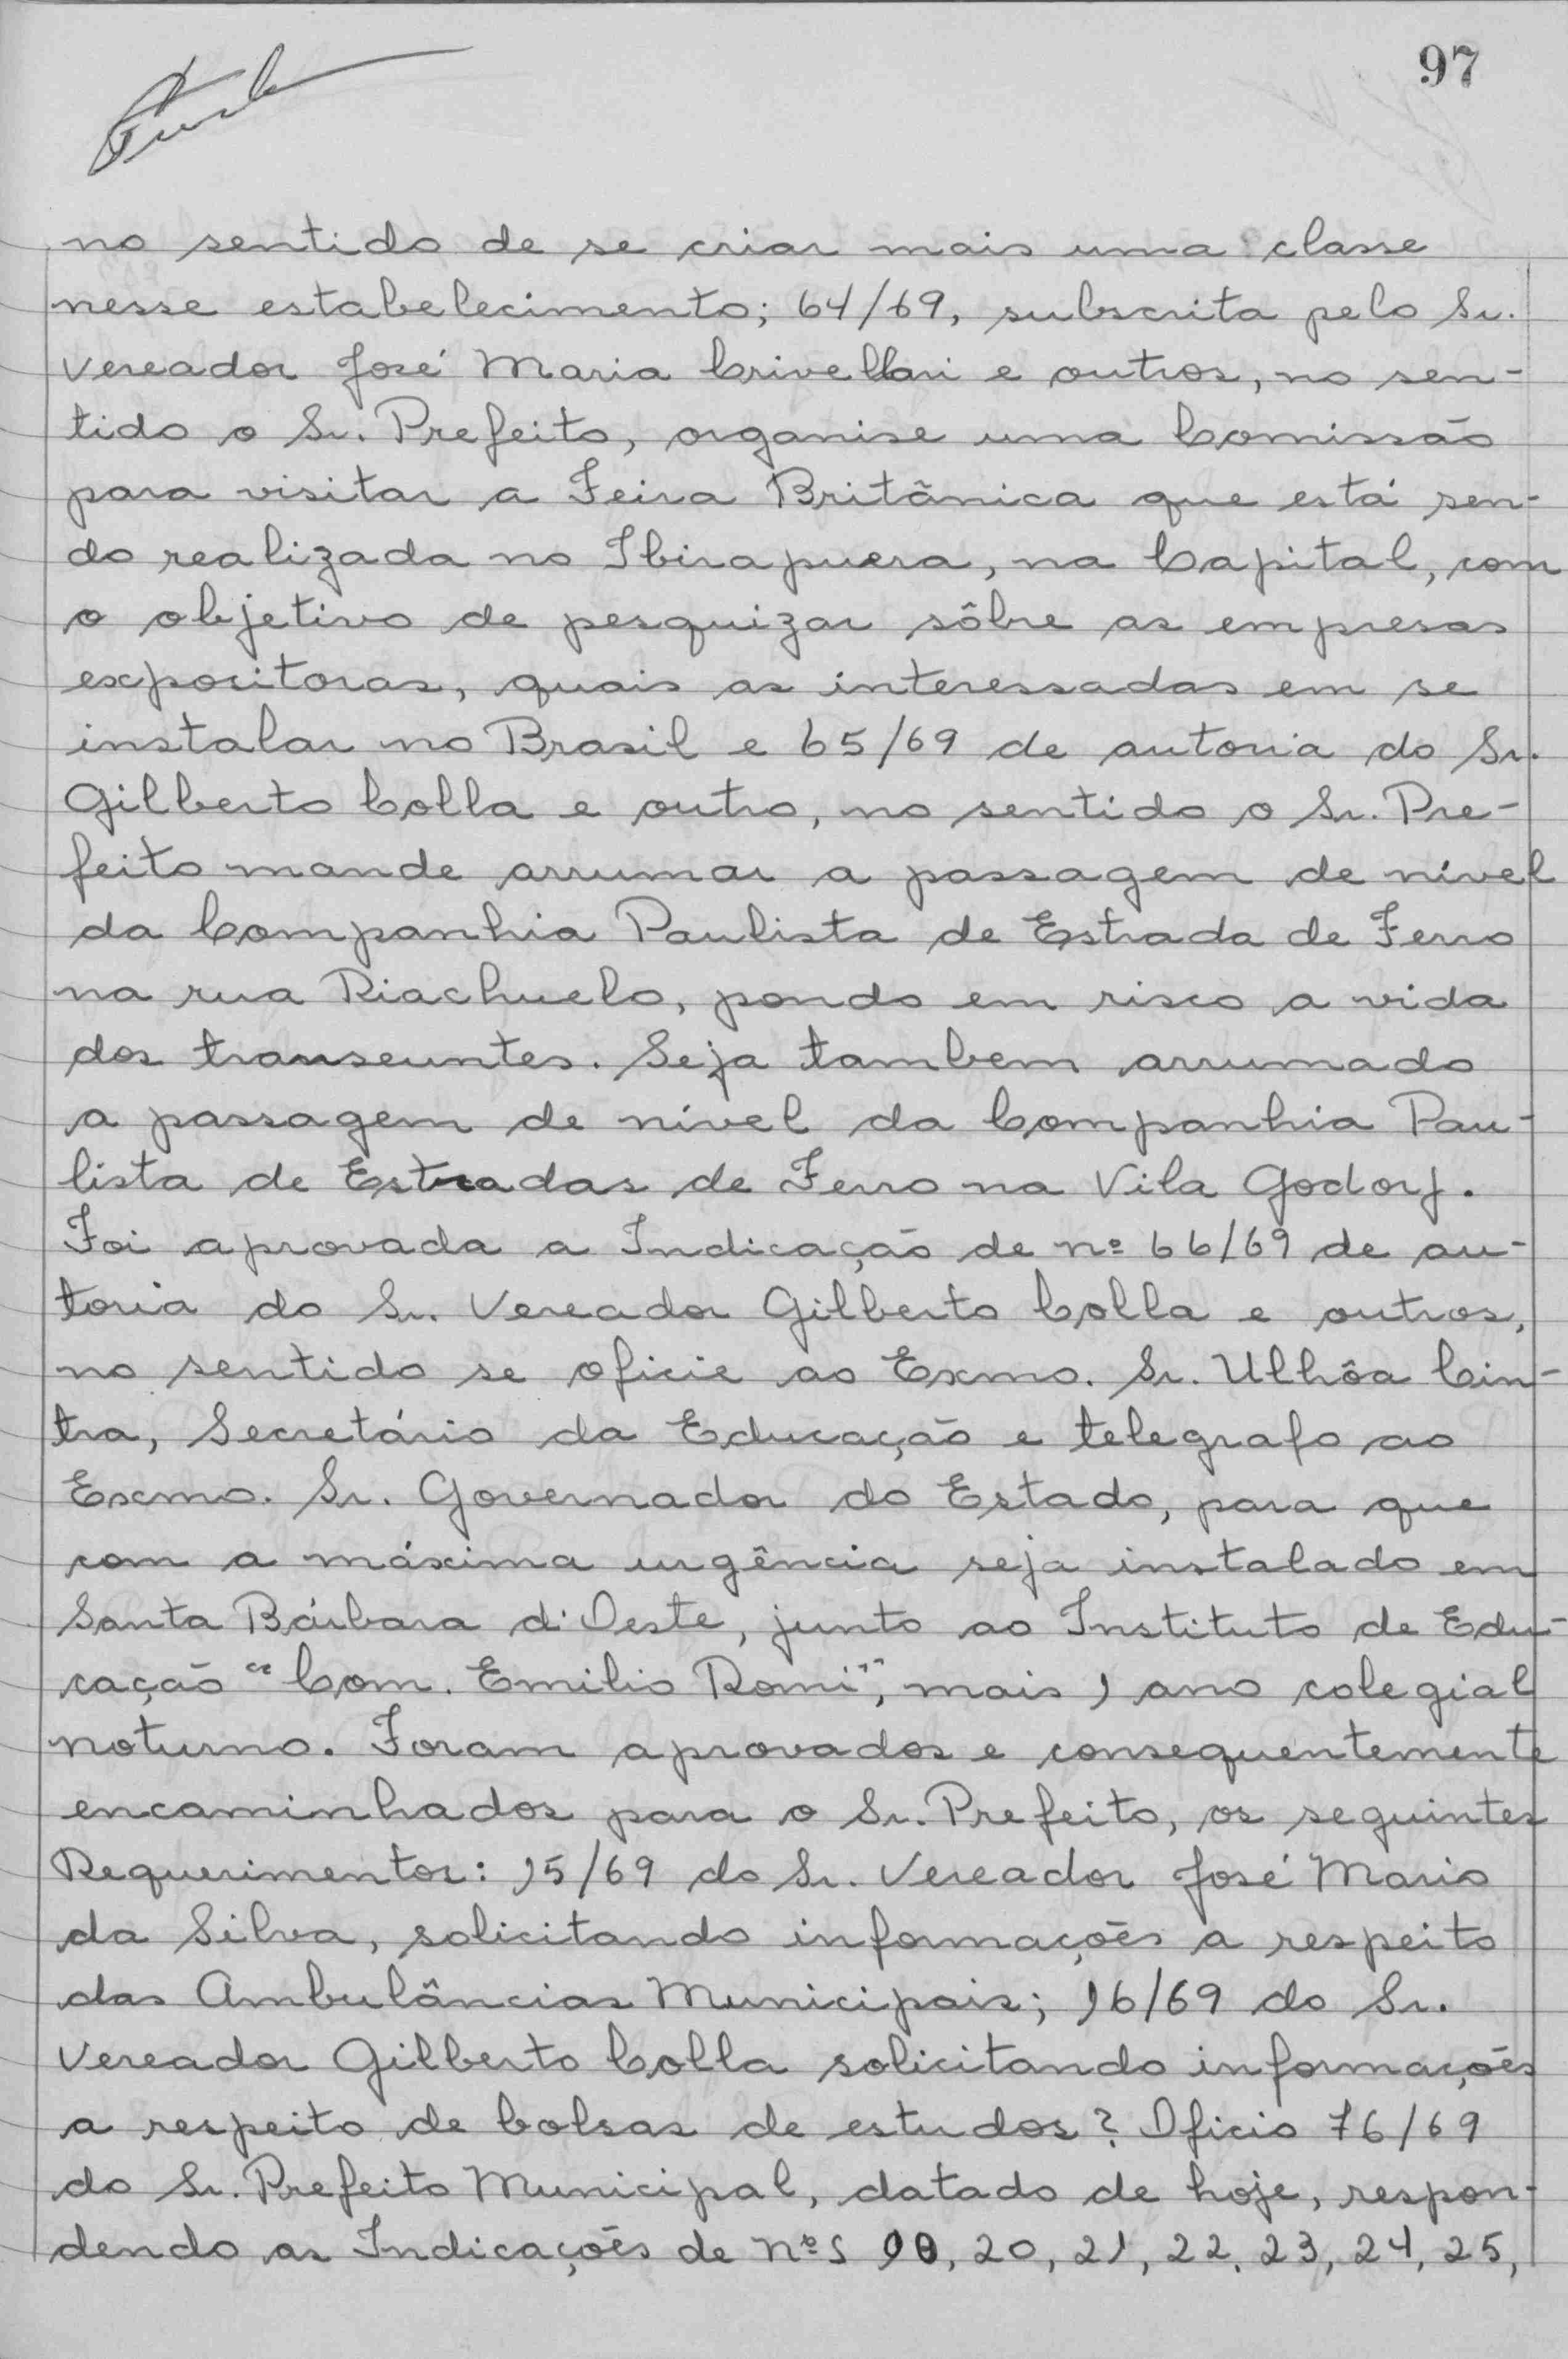 97
no sentido de se criar mais uma classe
nesse estabelecimento; 64/69, subscrita pelo Sr.
Vereador José Maria Crivellari e outros, no sen-
tido o Sr. Prefeito, organise uma Comissão
para visitar a Feira Britânica que está sen-
do realizada no Ibirapuera, na Capital, com
o objetivo de pesquizar sôbre as empresas
expositoras, quais as interessadas em se
instalar no Brasil e 65/69 de autoria do Sr.
Gilberto Colla e outro, no sentido o Sr. Pre-
feito mande arrumar a passagem de nível
da Companhia Paulista de Estrada de Ferro
na rua Riachuelo, pondo em risco a vida
dos transeuntes. Seja tambem arrumado
a passagem de nível da Companhia Pau-
lista de Estradas de Ferro na Vila Godoy.
Foi aprovada a Indicação de nº 66/69 de au-
toria do Sr. Vereador Gilberto Colla e outros,
no sentido se oficie ao Exmo. Sr. Ulhôa Cin-
tra, Secretário da Educação e telegrafo ao
Exmo. Sr. Governador do Estado, para que
com a máxima urgência seja instalado em
Santa Bárbara d'Oeste, junto ao Instituto de Edu-
cação "Com. Emilio Romi", mais 1 ano colegial
noturno. Foram aprovados e consequentemente
encaminhados para o Sr. Prefeito, os seguintes
Requerimentos: 15/69 do Sr. Vereador José Mario
da Silva, solicitando informações a respeito
das Ambulâncias Municipais; 16/69 do Sr.
Vereador Gilberto Colla solicitando informações
a respeito de bolsas de estudos? Oficio 76/69
do Sr. Prefeito Municipal, datado de hoje, respon-
dendo as Indicações de nºs 20, 21, 22, 23, 24, 25,